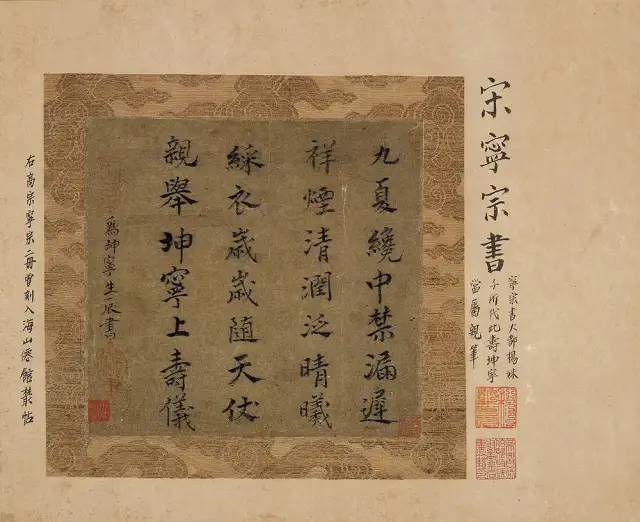 宋寧宗書
寧宗書大都楊妹
子所代此壽坤寧
當屬親筆
九夏纔中禁漏遲
祥煙清潤泛晴曦
綵衣歲歲隨天仗
親舉坤寧上壽儀
為坤寧生辰書
右高宗寧宗二冊曾刻入海山僊館叢帖